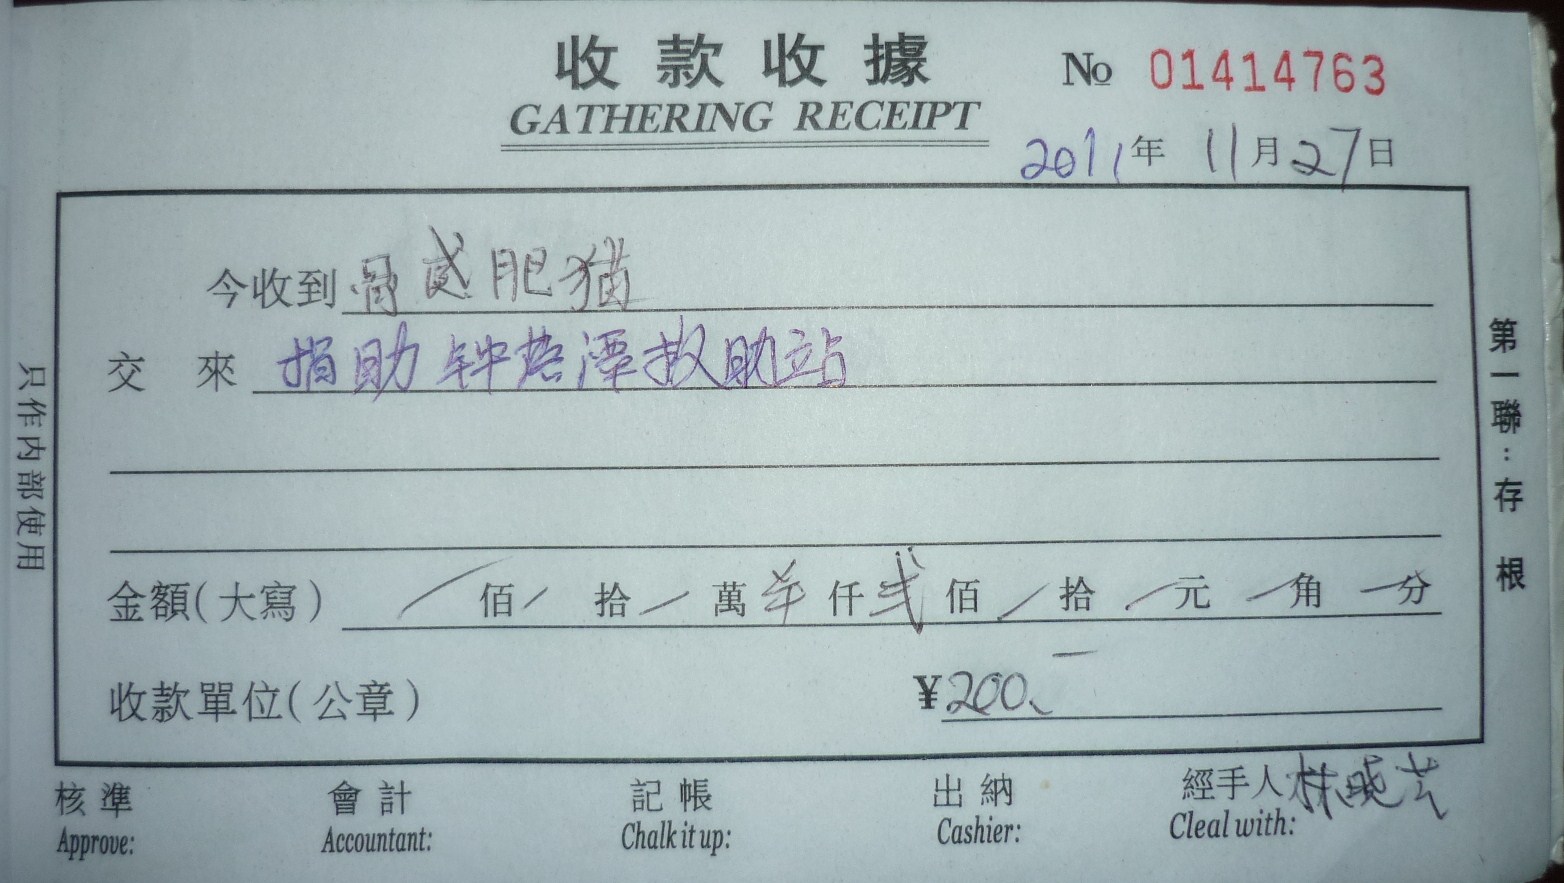 收款收據
No 01414763
GATHERING RECEIPT
2011年 11月27日
今收到 骨感肥猫
交 來 捐助钟落潭救助站
金額(大寫) / 佰 / 拾 / 萬 仟 贰 佰 / 拾 / 元 / 角 / 分
收款單位(公章) ¥200、—
核準 會計 記帳 出納 經手人 林晓芸
Approve: Accountant: Chalk it up: Cashier: Cleal with:
只作内部使用
第一聯:存根